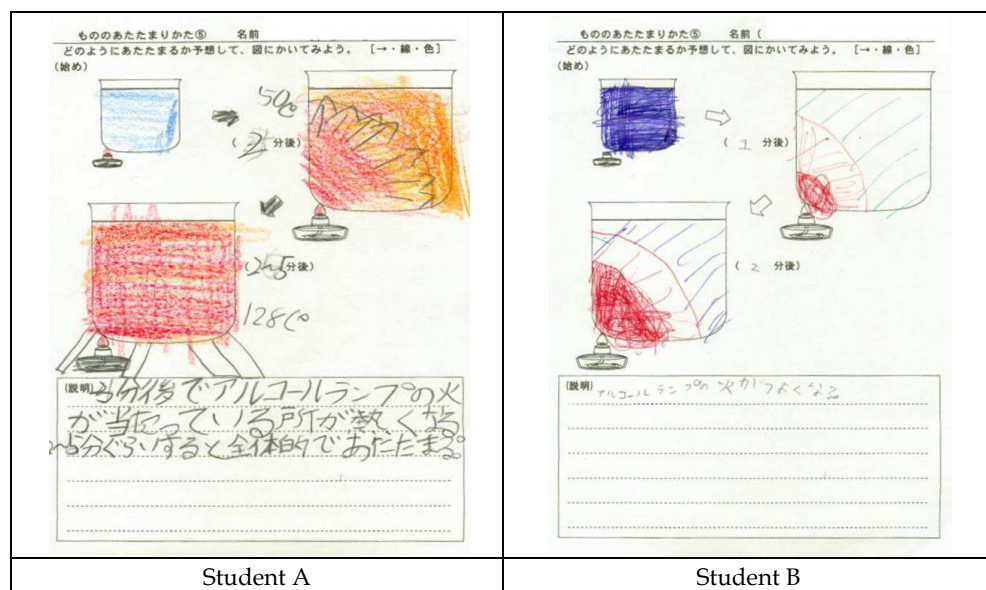 もののあたたまりかた⑤ 名前
どのようにあたたまるか予想して、図にかいてみよう。 [→・線・色]
(始め)
50℃
( 2 分後)
(2~5分後)
128℃
(説明) 分後でアルコールランプの火
が当たっている所が熱くなる
~5分ぐらいすると全体的であたたまる。
Student A
もののあたたまりかた⑤ 名前 (
どのようにあたたまるか予想して、図にかいてみよう。 [→・線・色]
(始め)
( 1 分後)
( 2 分後)
(説明) アルコールランプの火がつよくなる
Student B